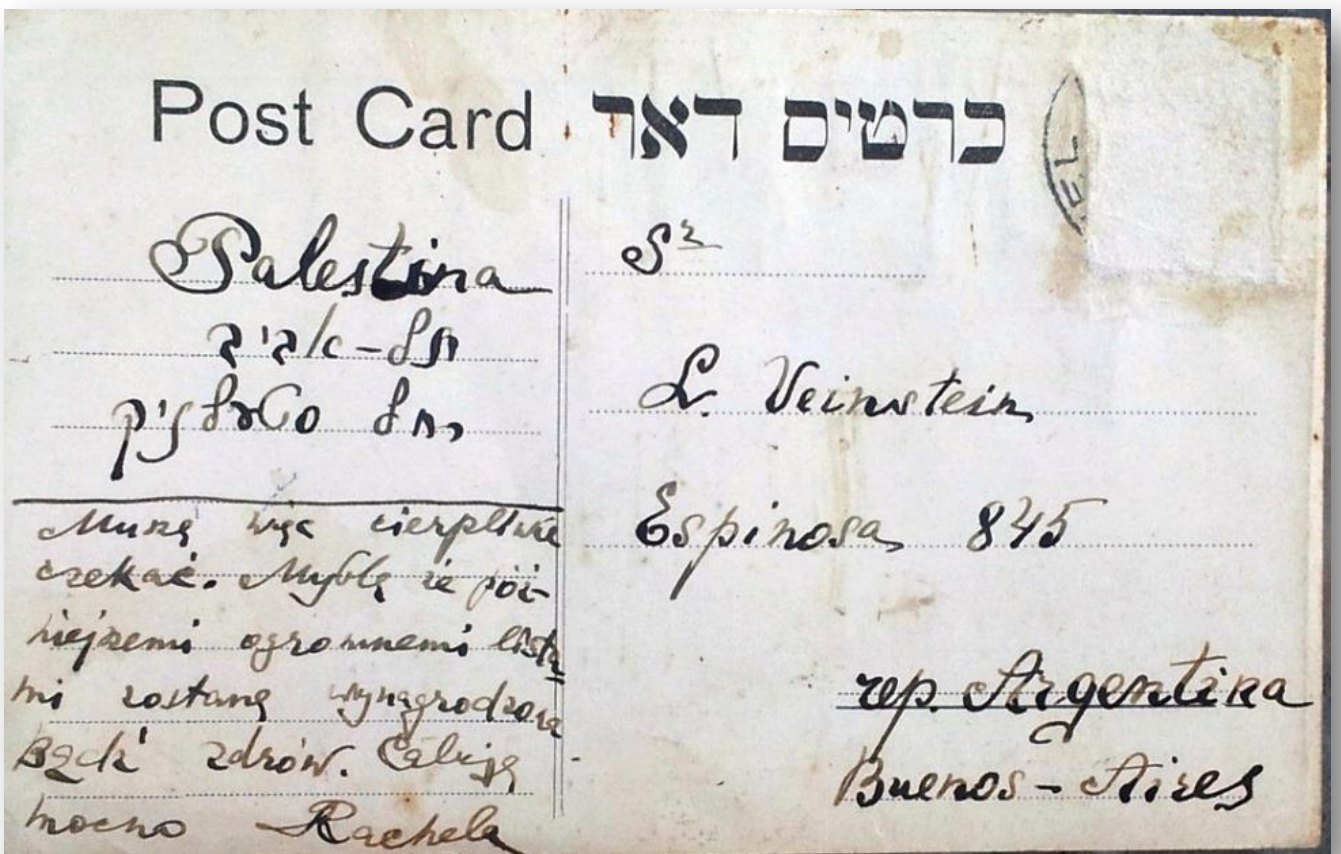 Post Card כרטיס דאר
EL
Palestina
תל-אביב
תל
Muszę więc cierpliwie
czekać. Myślę że póź-
niejszemi ogromnemi lista-
mi zostanę wynagrodzona
Bądź zdrów. Całuję
mocno Rachela
Sr
L. Veinstein
Espinosa 845
rep. Argentina
Buenos-Aires